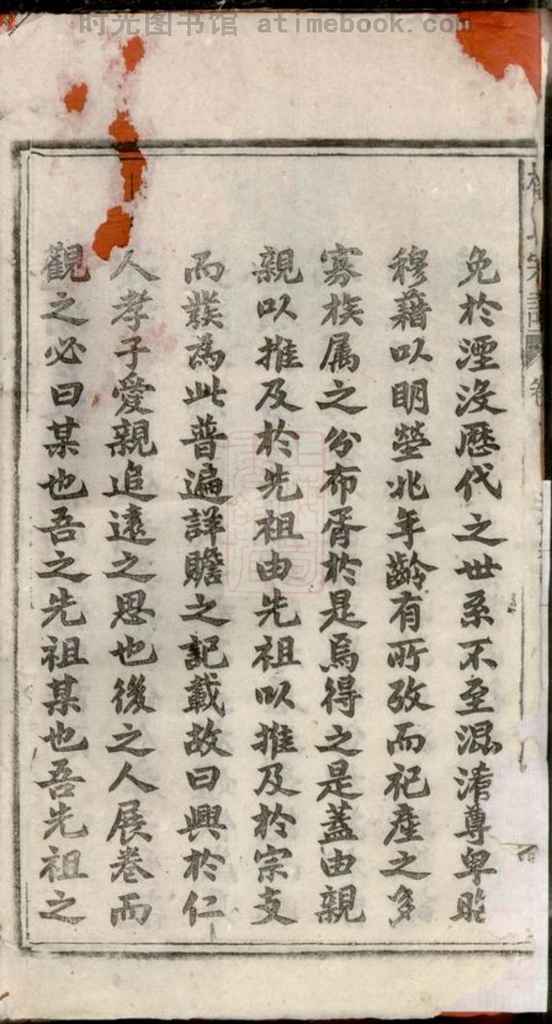 时光图书馆 atimebook.com
免於湮沒歷代之世系不至混淆尊卑昭
穆藉以明塋兆年齡有所攷而祀產之多
寡族属之分布胥於是焉得之是蓋由親
親以推及於先祖由先祖以推及於宗支
而發為此普遍詳贍之記載故曰興於仁
人孝子愛親追遠之思也後之人展卷而
觀之必曰某也吾之先祖某也吾先祖之